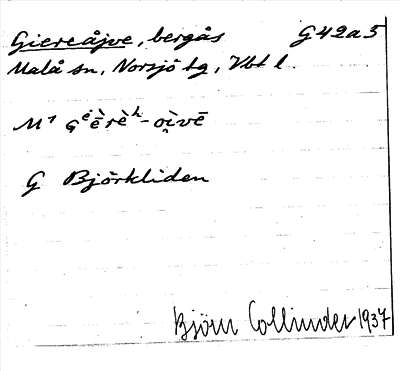 Giereåjve, bergås G42a5
Malå sn, Norsjö tg, Vbt l.
M¹ Géèrèʰ-oi̯vē
G Björkliden
Björn Collinder 1937